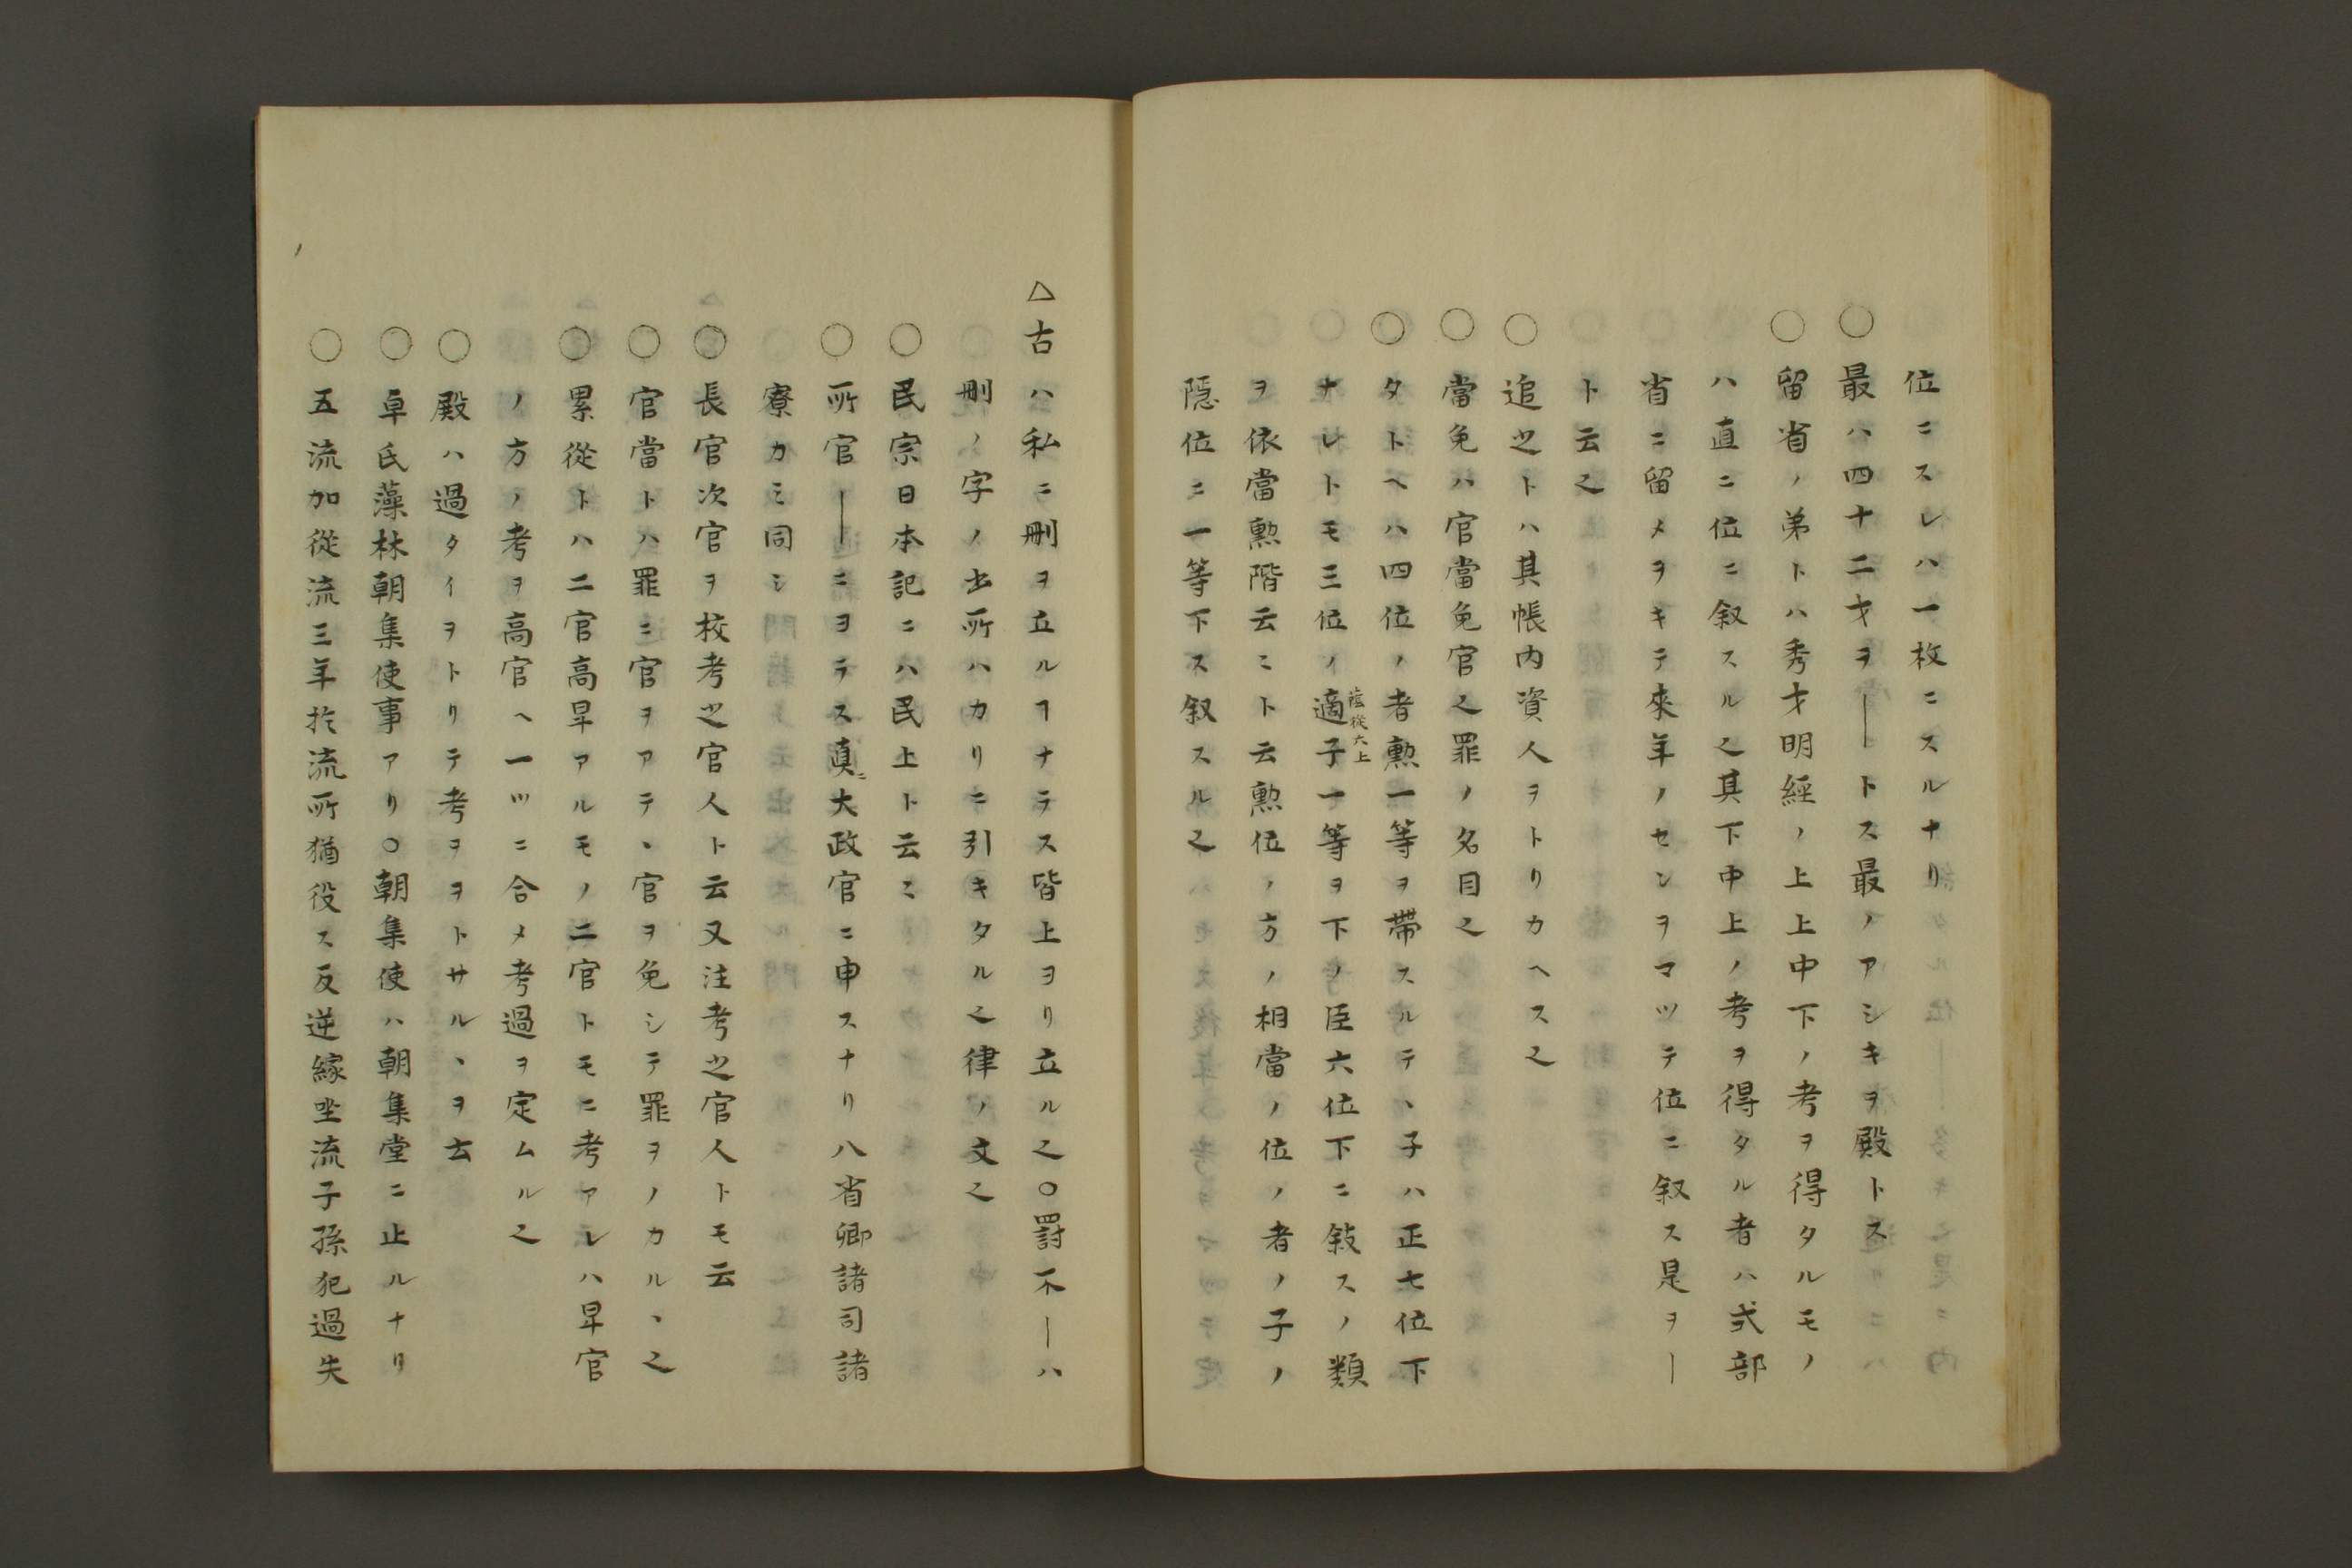 位ニスレハ一枚ニスルナリ
○最ハ四十二才ヲ―トス最ノアシキヲ殿トス
○留省ノ弟トハ秀才明經ノ上上中下ノ考ヲ得タルモノ
ハ直ニ位ニ叙スル之其下中上ノ考ヲ得タル者ハ式部
省ニ留メヲキテ來年ノセンヲマツテ位ニ叙ス是ヲ―
ト云之
○追之トハ其帳内資人ヲトリカヘス之
○當免ハ官當免官之罪ノ名目之
○タトヘハ四位ノ者勲一等ヲ帶スルテヽ子ハ正七位下
蔭從六上
ナレトモ三位ノ適子一等ヲ下ノ臣六位下ニ敍スノ類
ヲ依當勲階云ニト云勲位ノ方ノ相當ノ位ノ者ノ子ノ
隠位ニ一等下ス叙スル之
△古ハ私ニ刪ヲ立ルヿナラス皆上ヨリ立ル之○罸不―ハ
刪ノ字ノ出所ハカリニ引キタル之律ノ文之
○民宗日本記ニハ民上ト云ニ
○所官―ニヨラス真ニ大政官ニ申スナリ八省卿諸司諸
寮カミ同シ
○長官次官ヲ校考之官人ト云又注考之官人トモ云
○官當トハ罪ニ官ヲアテヽ官ヲ免シテ罪ヲノカルヽ之
○累從トハ二官高卑アルモノ二官トモニ考アレハ卑官
ノ方ノ考ヲ高官ヘ一ツニ合メ考過ヲ定ムル之
○殿ハ過タイヲトリテ考ヲヲトサルヽヲ云
○卓氏藻林朝集使事アリ○朝集使ハ朝集堂ニ止ルナリ
○五流加從流三年於流所猶役ス反逆縁坐流子孫犯過失